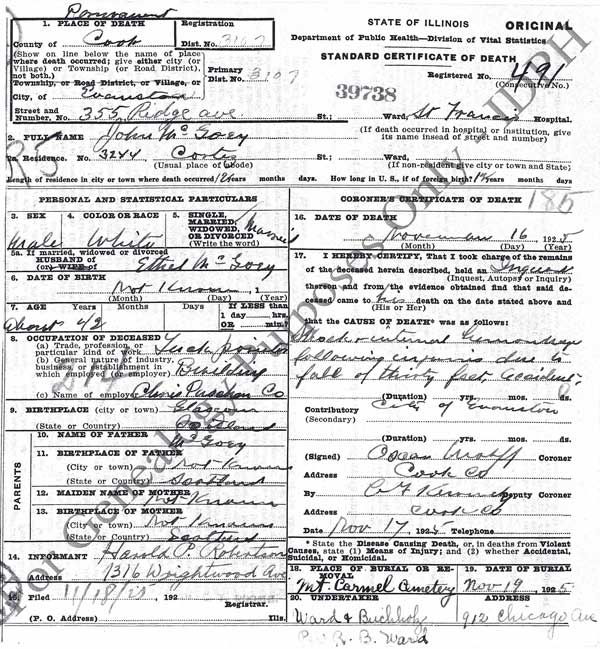 Permanent
1. PLACE OF DEATH
Registration
County of Cook Dist. No. 3107
(Show on line below the name of place
where death occurred; give either city (or
Village) or Township (or Road District),
not both.)
Primary
Dist. No. 3107
Township, or Road District, or Village, or
City, of Evanston
Street and
Number, No. 355 Ridge ave St.;
STATE OF ILLINOIS ORIGINAL
Department of Public Health—Division of Vital Statistics
STANDARD CERTIFICATE OF DEATH
Registered No. 491
(Consecutive No.)
39738
Ward, St Francis Hospital.
(If death occurred in hospital or institution, give
its name insead of street and number)
2. FULL NAME John McGoey
2a. Residence. No. 3244 Cortez St., Ward,
(Usual place of abode) (If non-resident give city or town and State)
Length of residence in city or town where death occurred, 12 years months days How long in U. S., if of foreign birth? years months days
PERSONAL AND STATISTICAL PARTICULARS
3. SEX 4. COLOR OR RACE 5. SINGLE, MARRIED, WIDOWED, OR DIVORCED (Write the word)
Male White Married
5a. If married, widowed or divorced
HUSBAND of
(or) WIFE of Ethel McGoey
6. DATE OF BIRTH
Not Known, 1
(Month) (Day) (Year)
7. AGE Years Months Days If LESS than
1 day hrs.
OR min.?
About 42
8. OCCUPATION OF DECEASED
(a) Trade, profession, or
particular kind of work Tuck pointer
(b) General nature of industry,
business, or establishment in
which employed (or employer) Building
(c) Name of employer Chris Paschen Co
9. BIRTHPLACE (city or town) Glasgow
(State or Country) Scotland
PARENTS
10. NAME OF FATHER
McGoey
11. BIRTHPLACE OF FATHER
(City or town) Not Known
(State or Country) Scotland
12. MAIDEN NAME OF MOTHER
Not Known
13. BIRTHPLACE OF MOTHER
(City or town) Not Known
(State or Country) Scotland
14. INFORMANT Harold P. Robertson
Address 1316 Wrightwood Ave
15. Filed 11/18/25, 192
Registrar.
(P. O. Address) Ills.
CORONER'S CERTIFICATE OF DEATH 185
16. DATE OF DEATH
November 16 1925
(Month) (Day) (Year)
17. I HEREBY CERTIFY, That I took charge of the remains
of the deceased herein described, held an Inquest
(Inquest, Autopsy or Inquiry)
thereon, and from the evidence obtained find that said de-
ceased came to his death on the date stated above and
(His or Her)
that the CAUSE OF DEATH* was as follows:
Shock & internal hemorrhage
following injuries due to
fall of thirty feet, accident,
(Duration) yrs. mos. ds.
Contributory City of Evanston
(Secondary)
(Duration) yrs. mos. ds.
(Signed) Oscar Wolff Coroner
Address Cook Co
By Deputy Coroner
Address Cook Co
Date Nov 17, 1925 Telephone
* State the Disease Causing Death, or, in deaths from Violent
Causes, state (1) Means of Injury; and (2) whether Accidental,
Suicidal, or Homicidal.
18. PLACE OF BURIAL OR RE-
MOVAL
19. DATE OF BURIAL
Mt. Carmel Cemetery Nov 19, 1925
20. UNDERTAKER ADDRESS
Ward & Buchholz 912 Chicago Ave
R. B. Ward
For Genealogy Purposes Only - IDPH